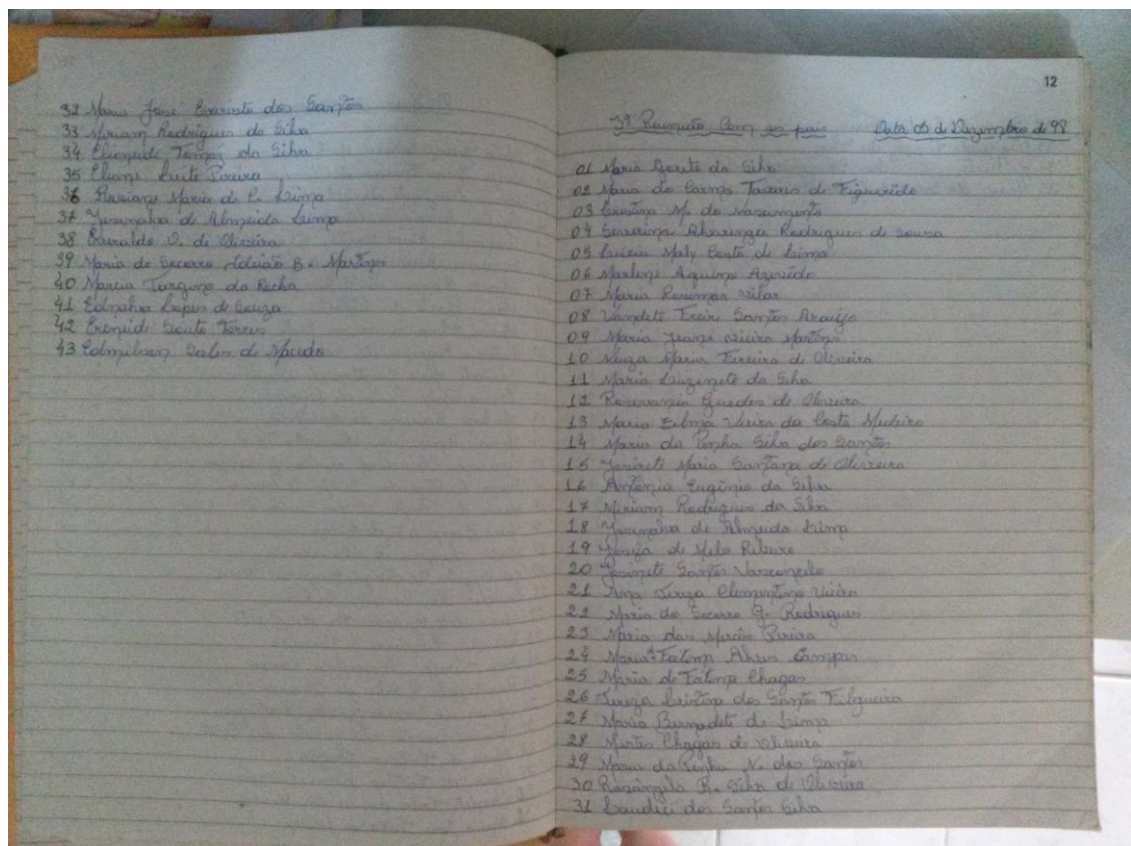 32 Maria José Evaristo dos Santos
33 Miriam Rodrigues da Silva
34 Elioneide Tomaz da Silva
35 Eliane Leite Pereira
36 Mariane Maria de C. Lima
37 Josinalva de Almeida Lima
38 Erivaldo O. de Oliveira
39 Maria do Socorro Adelião B. Martins
40 Marcia Targino da Rocha
41 Ednalva Lopes de Souza
42 Eroneide Souto Torres
43 Edmilson Sales de Macedo
12
3ª Reunião Com os pais Data 05 de Dezembro de 98
01 Maria Gorete da Silva
02 Maria do Carmo Tavares de Figueirêdo
03 Cristina M. do Nascimento
04 Severina Alvarenga Rodrigues de Souza
05 Lucia Maly Costa de Lima
06 Marlene Aquino Azevêdo
07 Maria Rosimar Vilar
08 Vandete Freire Santos Araújo
09 Maria Jeane Vieira Martins
10 Neuza Maria Ferreira de Oliveira
11 Maria Luzinete da Silva
12 Rosevania Guedes de Oliveira
13 Maria Zelma Vieira da Costa Medeiro
14 Maria da Penha Silva dos Santos
15 Josinete Maria Santana de Oliveira
16 Antônia Eugênio da Silva
17 Miriam Rodrigues da Silva
18 Josinalva de Almeida Lima
19 de Melo Ribeiro
20 Josinete Santos Vasconcelo
21 Ana Tereza Clementino Vieira
22 Maria do Socorro G. Rodrigues
23 Maria das Mercês Pereira
24 Maria de Fatima Alves Campos
25 Maria de Fátima Chagas
26 Tereza Cristina dos Santos Filgueira
27 Maria Bernadete de Lima
28 Mirtes Chagas de Oliveira
29 Maria da Penha N. dos Santos
30 Rosângela R. Silva de Oliveira
31 Claudeci dos Santos Silva